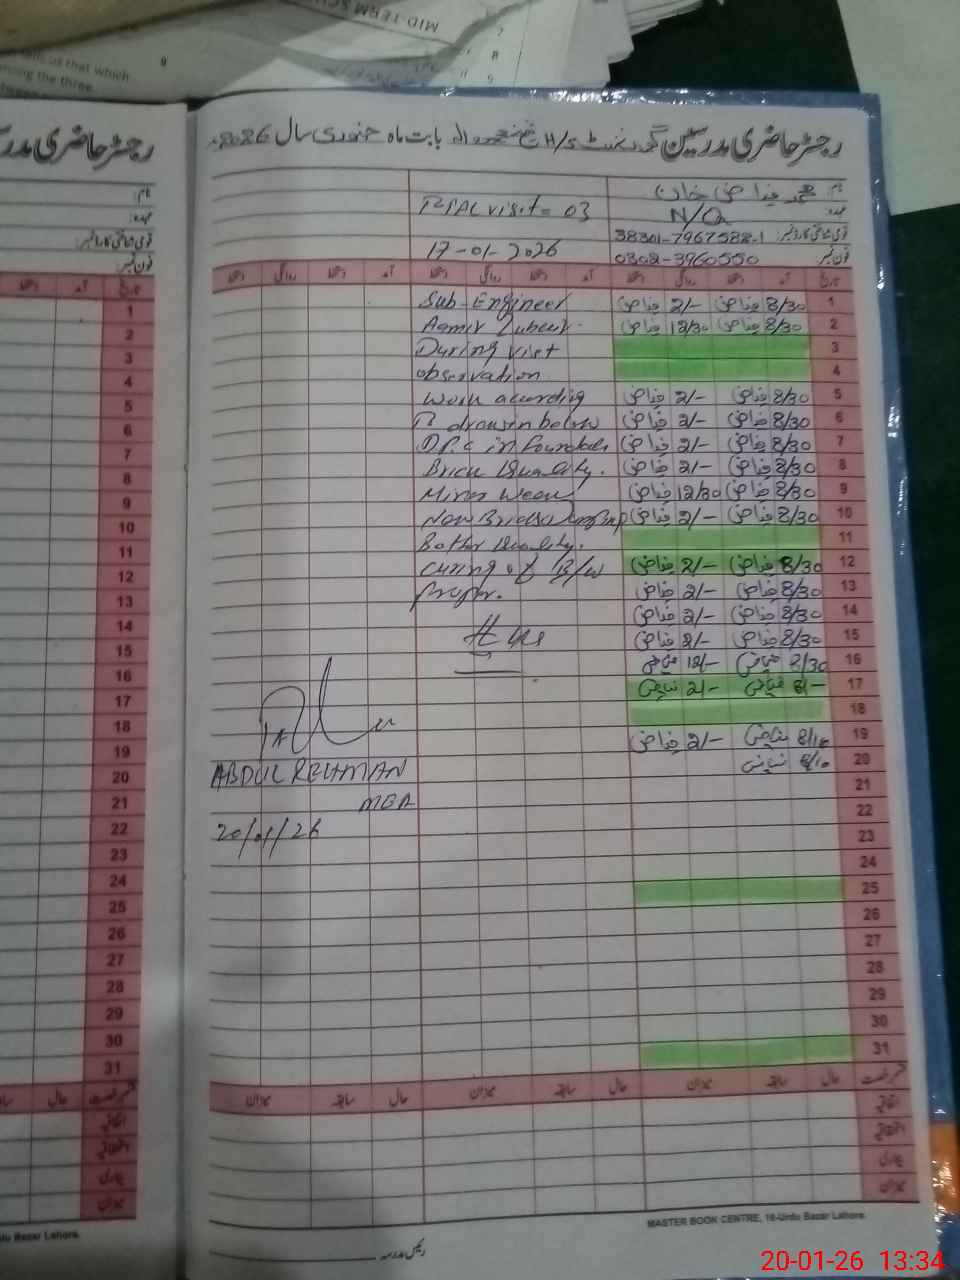 MID-TERM SC
ell us that which
mong the three.
9
8
رجسٹر حاضری مدرسین گورنمنٹ H/S بابت ماہ جنوری سال 2026ء
رجسٹر حاضری مدر
نام:
محمد فیاض خان
Total visit = 03
عہدہ:
N/Q
قومی شناختی کارڈ نمبر:
38301-7967588-1
17-01-2026
فون نمبر:
0302-3960550
تاریخ آمد دستخط روانگی دستخط آمد دستخط روانگی دستخط آمد دستخط روانگی دستخط
1 8/30 فیاض 2/- فیاض
Sub-Engineer
2 8/30 فیاض 12/30 فیاض
Aamir Zubair.
3
During visit
4
observation
5 8/30 فیاض 2/- فیاض
work according
6 8/30 فیاض 2/- فیاض
To drawin below
7 8/30 فیاض 2/- فیاض
D.P.C in Foundation
8 8/30 فیاض 2/- فیاض
Brick Quality.
9 8/30 فیاض 12/30 فیاض
Minor Weak
10 8/30 فیاض 2/- فیاض
Now Bricks
11
Better Quality.
12 8/30 فیاض 2/- فیاض
curing of B/W
13 8/30 فیاض 2/- فیاض
proper.
14 8/30 فیاض 2/- فیاض
15 8/30 فیاض 2/- فیاض
16 8/30 فیاض 12/- فیاض
17 8/- فیاض 2/- فیاض
18
19 8/10 فیاض 2/- فیاض
20 8/10 فیاض
ABDUL REHMAN
MEA
20/01/26
21
22
23
24
25
26
27
28
29
30
31
قسم رخصت حال سابقہ میزان حال سابقہ میزان حال سابقہ میزان
اتفاقیہ
استحقاقیہ
بیماری
میزان
MASTER BOOK CENTRE, 16-Urdu Bazar Lahore.
رئیس مدرسہ
تاریخ آمد دستخط
1
2
3
4
5
6
7
8
9
10
11
12
13
14
15
16
17
18
19
20
21
22
23
24
25
26
27
28
29
30
31
قسم رخصت حال
اتفاقیہ
استحقاقیہ
بیماری
میزان
du Bazar Lahore.
20-01-26 13:34